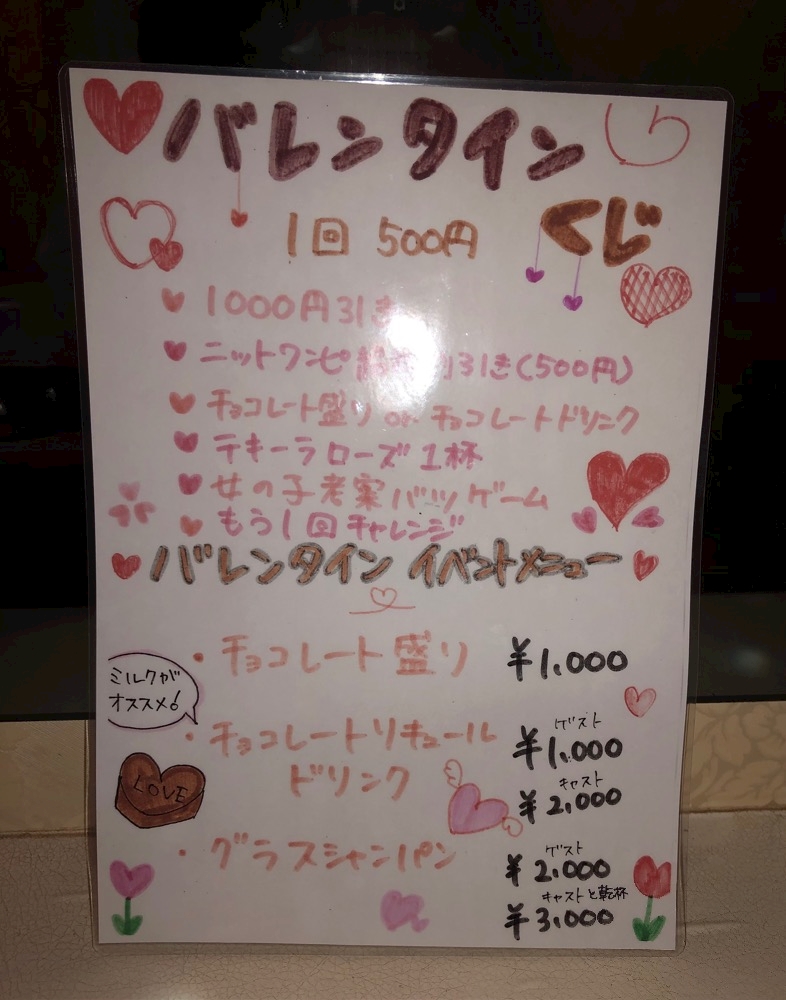 バレンタイン
くじ
1回 500円
1000円引き
ニットワンピ 引き(500円)
チョコレート盛り or チョコレートドリンク
テキーラローズ1杯
女の子考案バツゲーム
もう1回チャレンジ
バレンタイン イベントメニュー
・チョコレート盛り ¥1.000
ミルクが
オススメ!
・チョコレートリキュール
ドリンク
ゲスト
¥1.000
キャスト
¥2.000
LOVE
・グラスシャンパン
ゲスト
¥2.000
キャストと乾杯
¥3.000